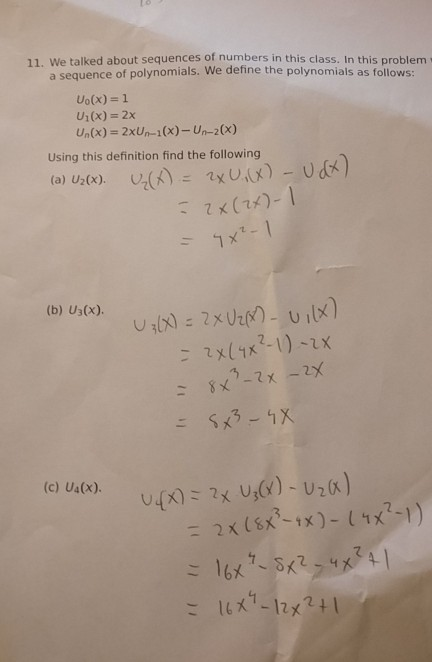 11. We talked about sequences of numbers in this class. In this problem
a sequence of polynomials. We define the polynomials as follows:
U₀(x) = 1
U₁(x) = 2x
Uₙ(x) = 2xUₙ₋₁(x) − Uₙ₋₂(x)
Using this definition find the following
(a) U₂(x). U₂(x) = 2x U₁(x) − U₀(x)
= 2x(2x) − 1
= 4x² − 1
(b) U₃(x).
U₃(x) = 2x U₂(x) − U₁(x)
= 2x(4x² − 1) − 2x
= 8x³ − 2x − 2x
= 8x³ − 4x
(c) U₄(x).
U₄(x) = 2x U₃(x) − U₂(x)
= 2x(8x³ − 4x) − (4x² − 1)
= 16x⁴ − 8x² − 4x² + 1
= 16x⁴ − 12x² + 1